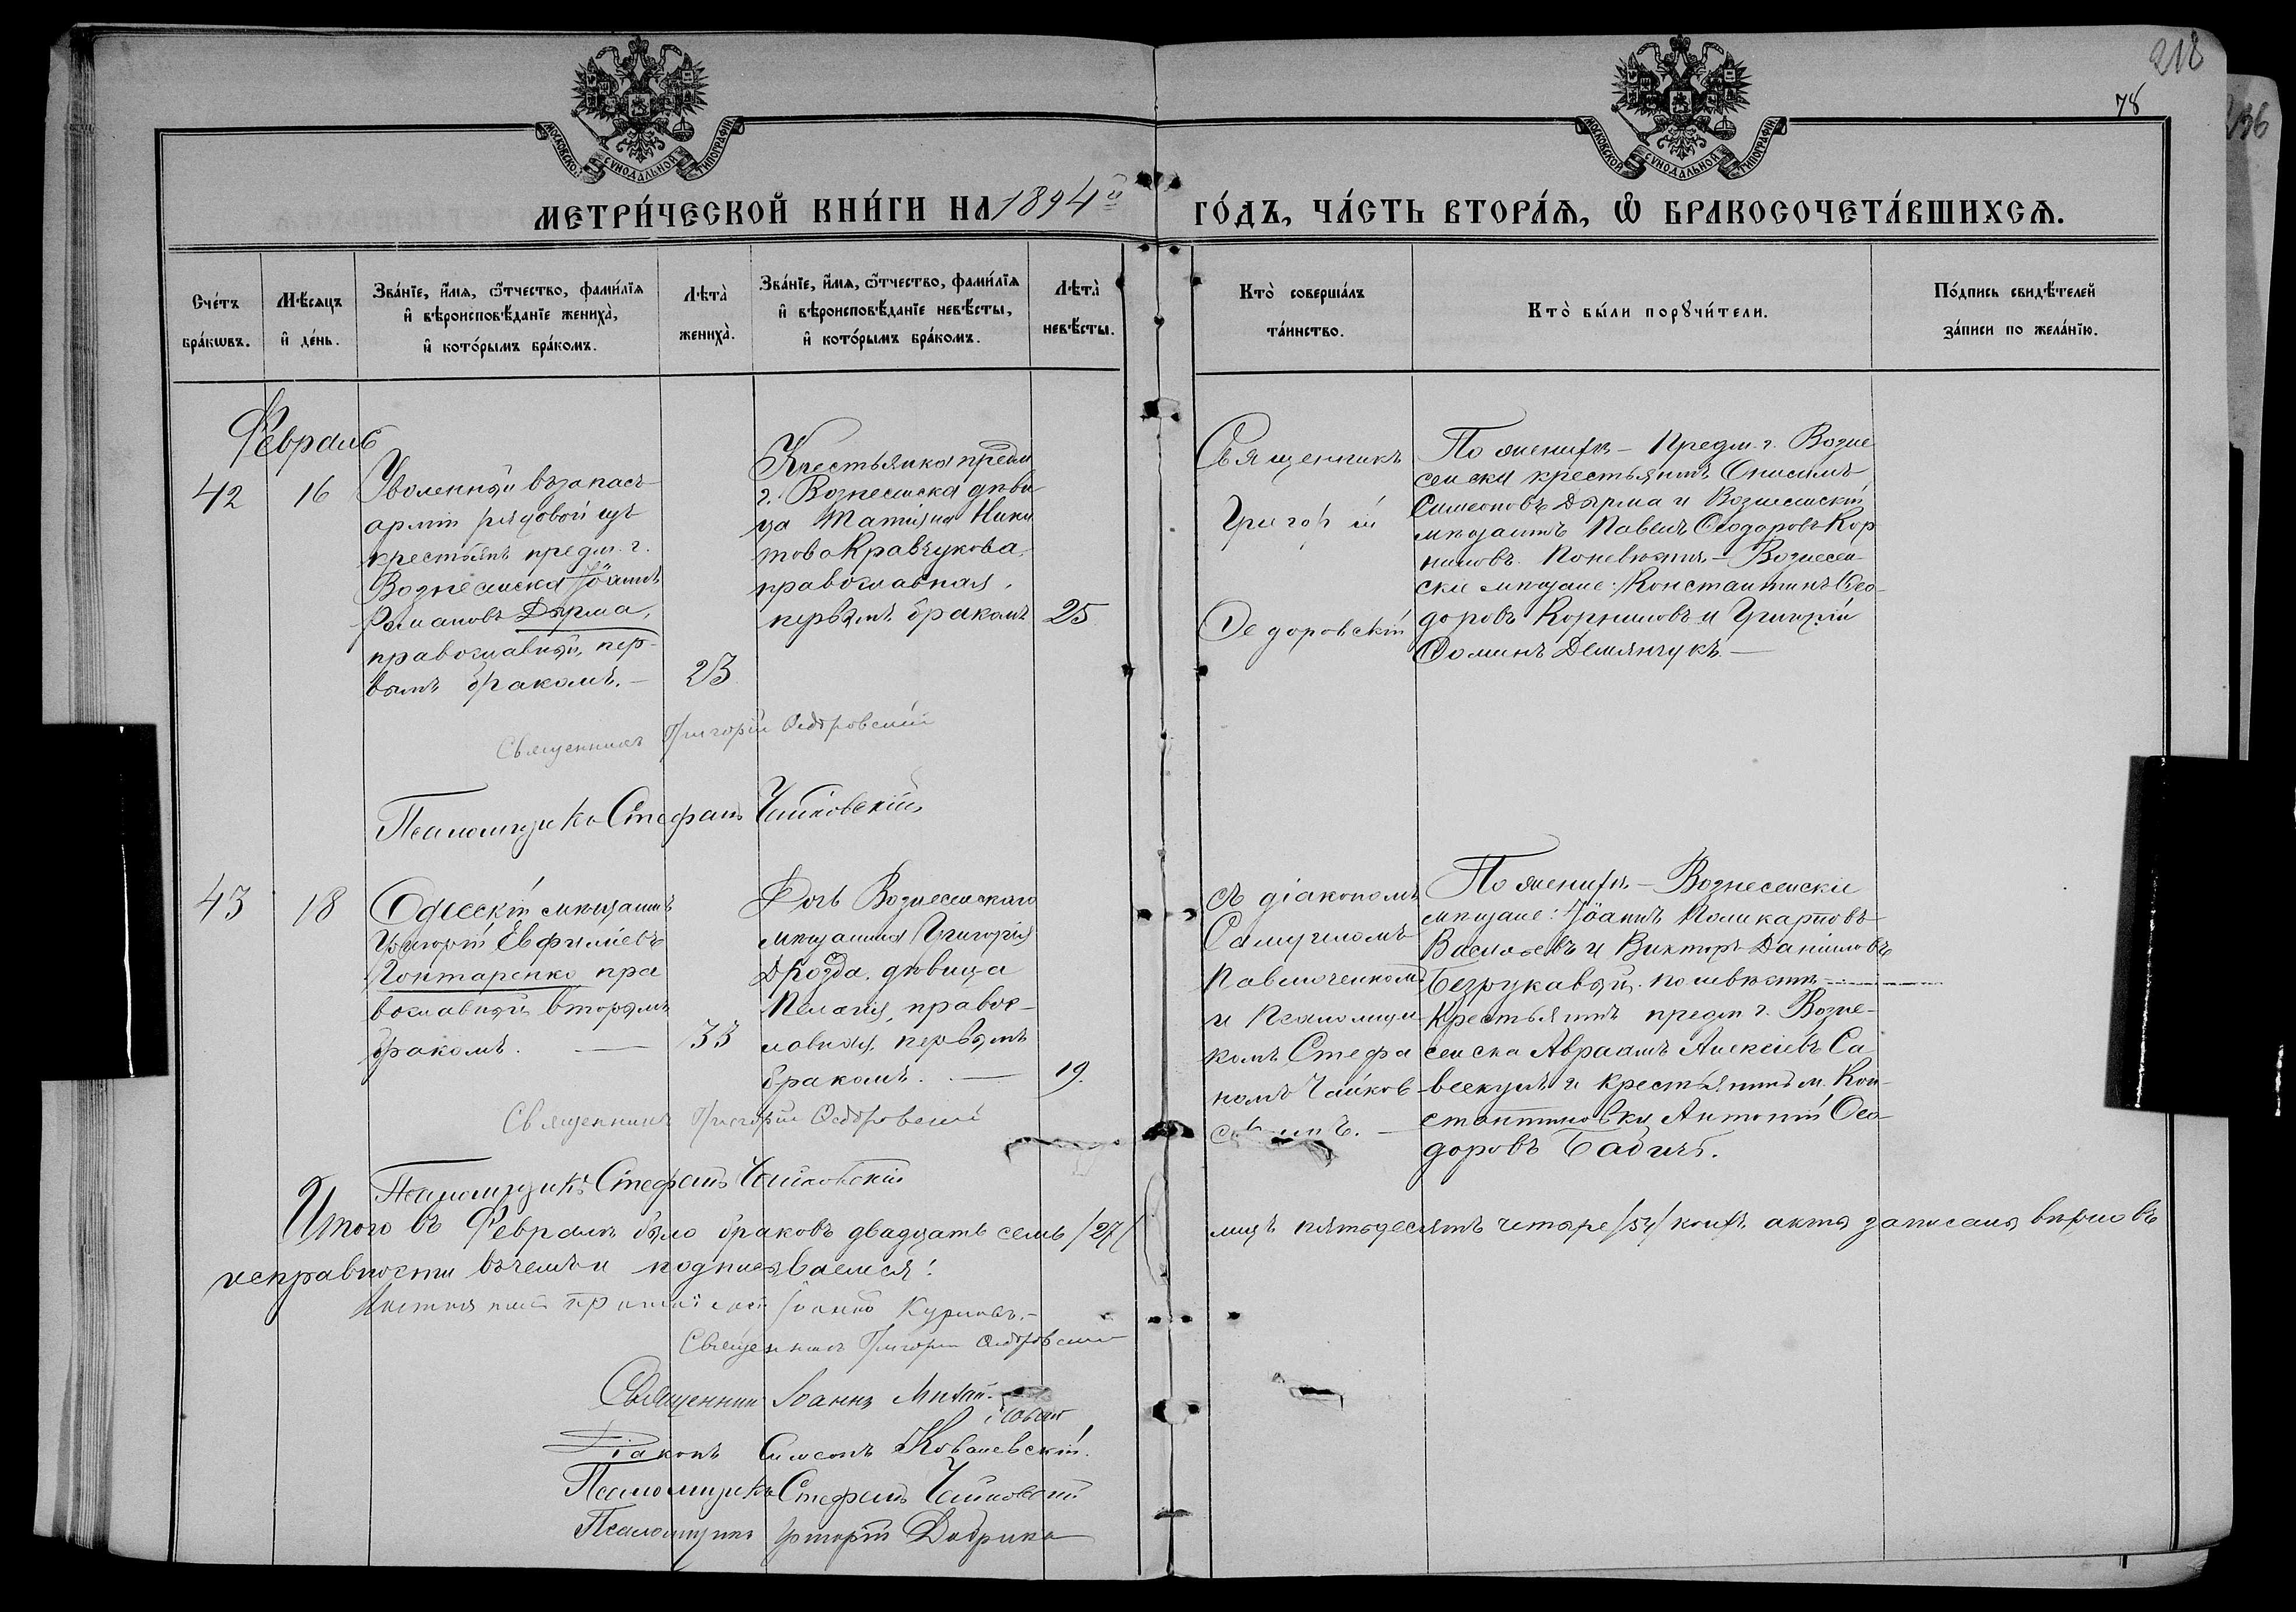 218
78
МОСКОВСКОЙ СѴНОДАЛЬНОЙ ТИПОГРАФІИ
МОСКОВСКОЙ СѴНОДАЛЬНОЙ ТИПОГРАФІИ
МЕТРИ́ЧЕСКОЙ КНИ́ГИ НА 1894й ГО́ДЪ, ЧА́СТЬ ВТОРА́Ѧ, Ѽ БРАКОСОЧЕТА́ВШИХСѦ.
Сче́тъ
бра́кѡвъ.
Мѣ́сяцъ
и҆ де́нь.
Зва́нїе, и҆́мѧ, ѻ҆́тчество, фами́лїѧ
и҆ вѣроисповѣ́данїе жениха̀,
и҆ кото́рымъ бра́комъ.
Лѣта̀
жениха̀.
Зва́нїе, и҆́мѧ, ѻ҆́тчество, фами́лїѧ
и҆ вѣроисповѣ́данїе невѣ́сты,
и҆ кото́рымъ бра́комъ.
Лѣта̀
невѣ́сты.
Кто̀ соверша́лъ
та́инство.
Кто̀ бы́ли порꙋчи́тели.
По́дпись свидѣ́телей
за́писи по жела́нїю.
Февраль
42
16
Уволенный въ запасъ
арміи рядовой изъ
крестьянъ предм. г.
Вознесенска Іоаннъ
Романовъ Дырма,
православный, пер-
вымъ бракомъ. —
23
Крестьянка предм
г. Вознесенска дѣви
ца Татіяна Ники
това Кравчукова,
православная,
первымъ бракомъ
25
Священникъ
Григорій
Ѳедоровскій
По женихѣ — Предм. г. Возне
сенска крестьянинъ Онисимъ
Симеоновъ Дырма и Вознесенскій
мѣщанинъ Павелъ Ѳеодоровъ Кор
ниловъ. По невѣстѣ — Вознесен-
скіе мѣщане: Константинъ Ѳео-
доровъ Корниловъ и Григорій
Ѳоминъ Демянчукъ. —
Священникъ Григорій Ѳедоровскій
Псаломщикъ Стефанъ Чайковскій
43
18
Одесскій мѣщанинъ
Григорій Евфиміевъ
Гонтаренко пра
вославный, вторымъ
бракомъ. —
33
Дочь Вознесенскаго
мѣщанина Григорія
Дрозда, дѣвица
Пелагія, правос-
лавная, первымъ
бракомъ. —
19.
съ діакономъ
Самуиломъ
Павлюченкомъ
и Псаломщи
комъ Стефа
номъ Чайков
скимъ. —
По женихѣ — Вознесенскіе
мѣщане: Іоаннъ Поликарповъ
Васильевъ и Викторъ Даніиловъ
Безрукавый. По невѣстѣ —
Крестьянинъ предм г. Возне-
сенска Авраамъ Алексіевъ Са
и крестьянинъ м. Кон-
стантиновки Антоній Ѳео-
доровъ Бабичъ.
Священникъ Григорій Ѳедоровскій
Псаломщикъ Стефанъ Чайковскій
Итого въ Февралѣ было браковъ двадцать семь /27/ лицъ пятьдесятъ четыре /54/ коихъ акты записаны вѣрно въ
исправности въ чемъ и подписываемся:
Іоаннъ
Священникъ Григорій Ѳедоровскій
Священникъ Іоаннъ
Діаконъ Симеонъ Ковалевскій.
Псаломщикъ Стефанъ Чайковскій
Псаломщикъ Григорій